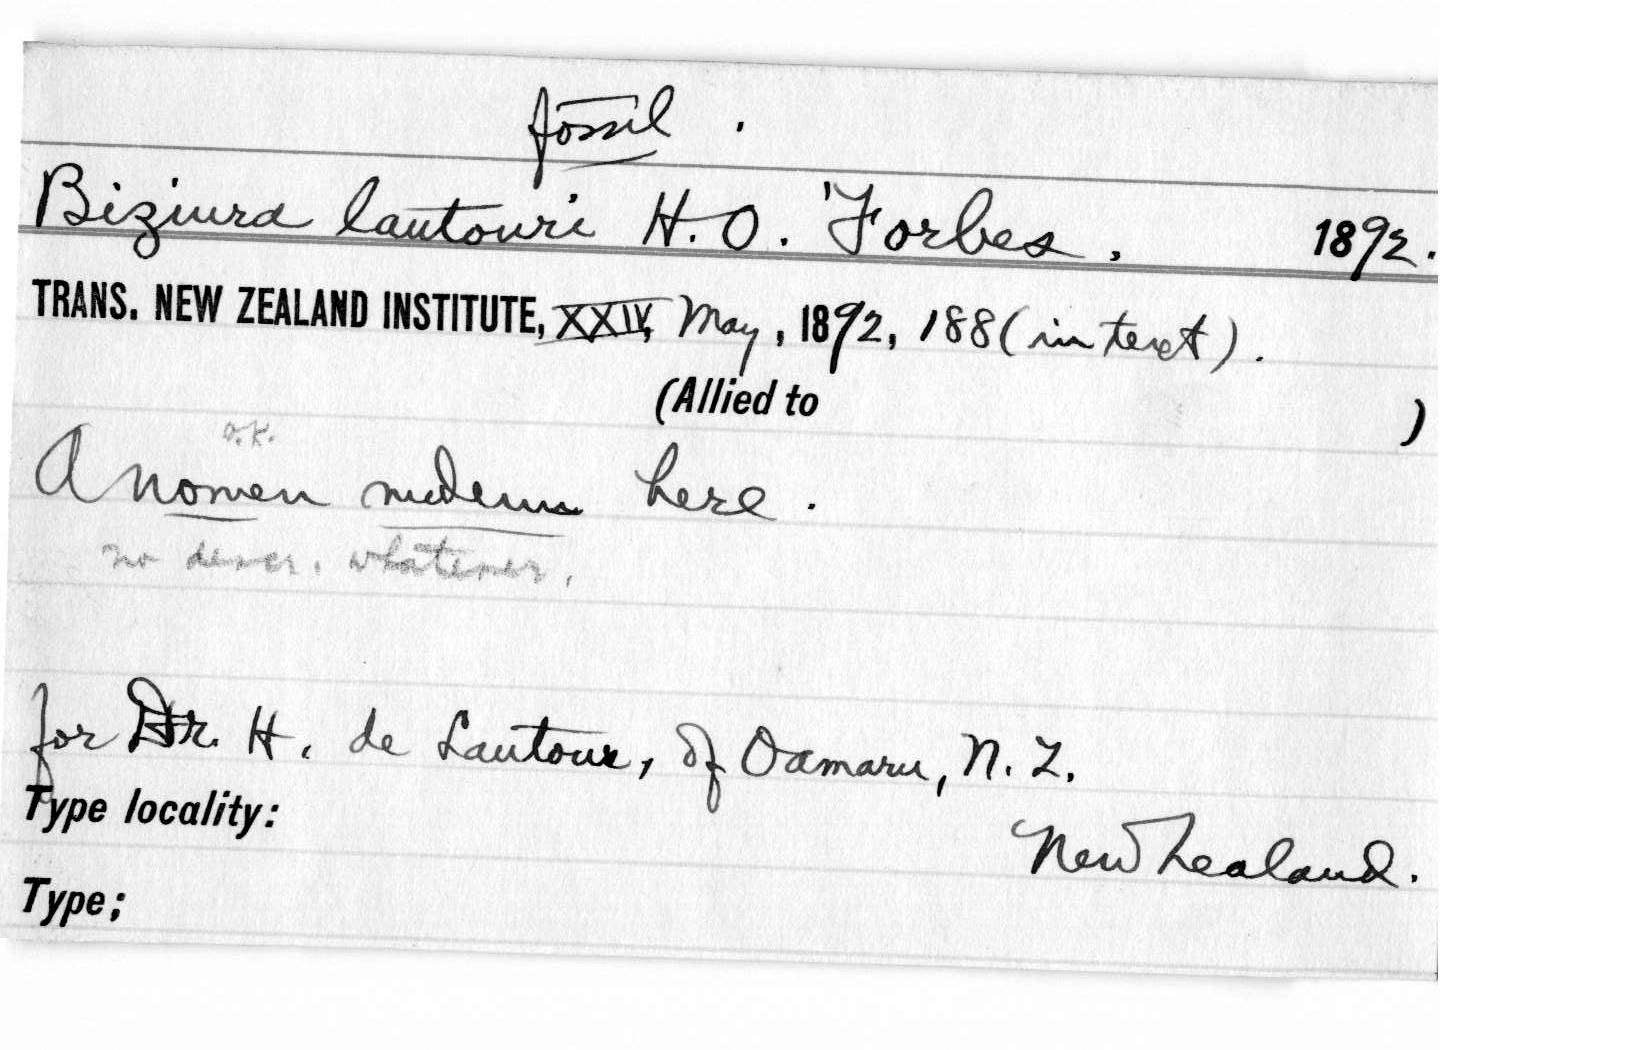 fossil .
Biziura lautouri H. O. Forbes, 1892.
TRANS. NEW ZEALAND INSTITUTE, XXIV, May, 1892, 188 (in text).
(Allied to )
o.k.
A nomen nudum here.
no descr. whatever.
for Dr. H. de Lautour, of Oamaru, N. Z.
Type locality:
New Zealand.
Type;